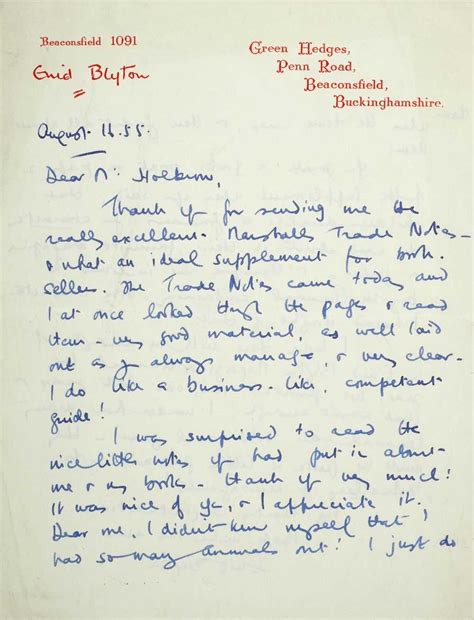 Beaconsfield 1091
Enid Blyton
Green Hedges,
Penn Road,
Beaconsfield,
Buckinghamshire.
August 16. 55.
Dear Mr Holbrow,
Thank y for sending me the
really excellent Marshalls Trade Notes -
& what an ideal supplement for book-
sellers. The Trade Notes came today and
I at once looked thrgh the pages & read
them - very good material, as well laid
out as y always manage & very clear.
I do like a business-like, competent
guide!
I was surprised to read the
nice little notes y had put in about
me & my books - thank y very much!
It was nice of yu, & I appreciate it.
Dear me, I didn't know myself that I
had so many annuals out! I just do